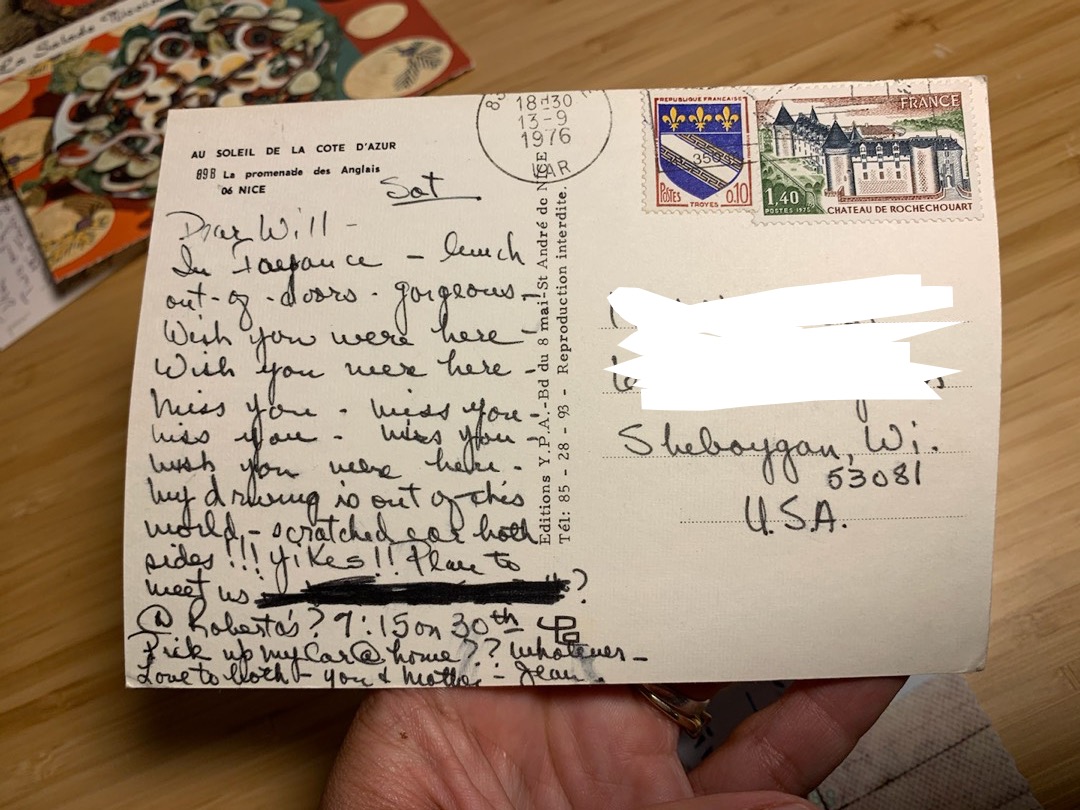 La Salade Nicoise
AU SOLEIL DE LA COTE D'AZUR
89B La promenade des Anglais
06 NICE
Sat
Dear Will -
In - lunch
out-of-doors - gorgeous -
Wish you were here -
Wish you were here -
Miss you - miss you -
Miss you - miss you -
Wish you were here -
My driving is out of this
world, - scratched car both
sides!!! Yikes!! Plan to
meet us ?
@ Roberta's? 9:15 on 30th
Pick up my car @ home?? Whatever -
Love to both - you & Mother - Jean.
Editions Y.P.A.-Bd du 8 mai-St André de NICE
Tél: 85 - 28 - 93 - Reproduction interdite.
18H30
13-9
1976
VAR
REPUBLIQUE FRANÇAISE
POSTES 0.10
TROYES
FRANCE
1,40
POSTES 1975
CHATEAU DE ROCHECHOUART
Sheboygan, Wi.
53081
U.S.A.